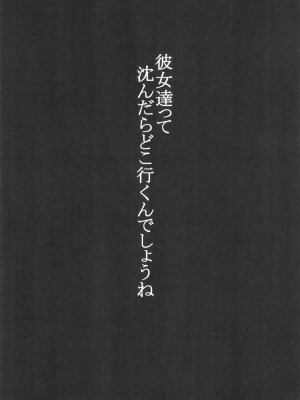 彼女達って
沈んだらどこ行くんでしょうね